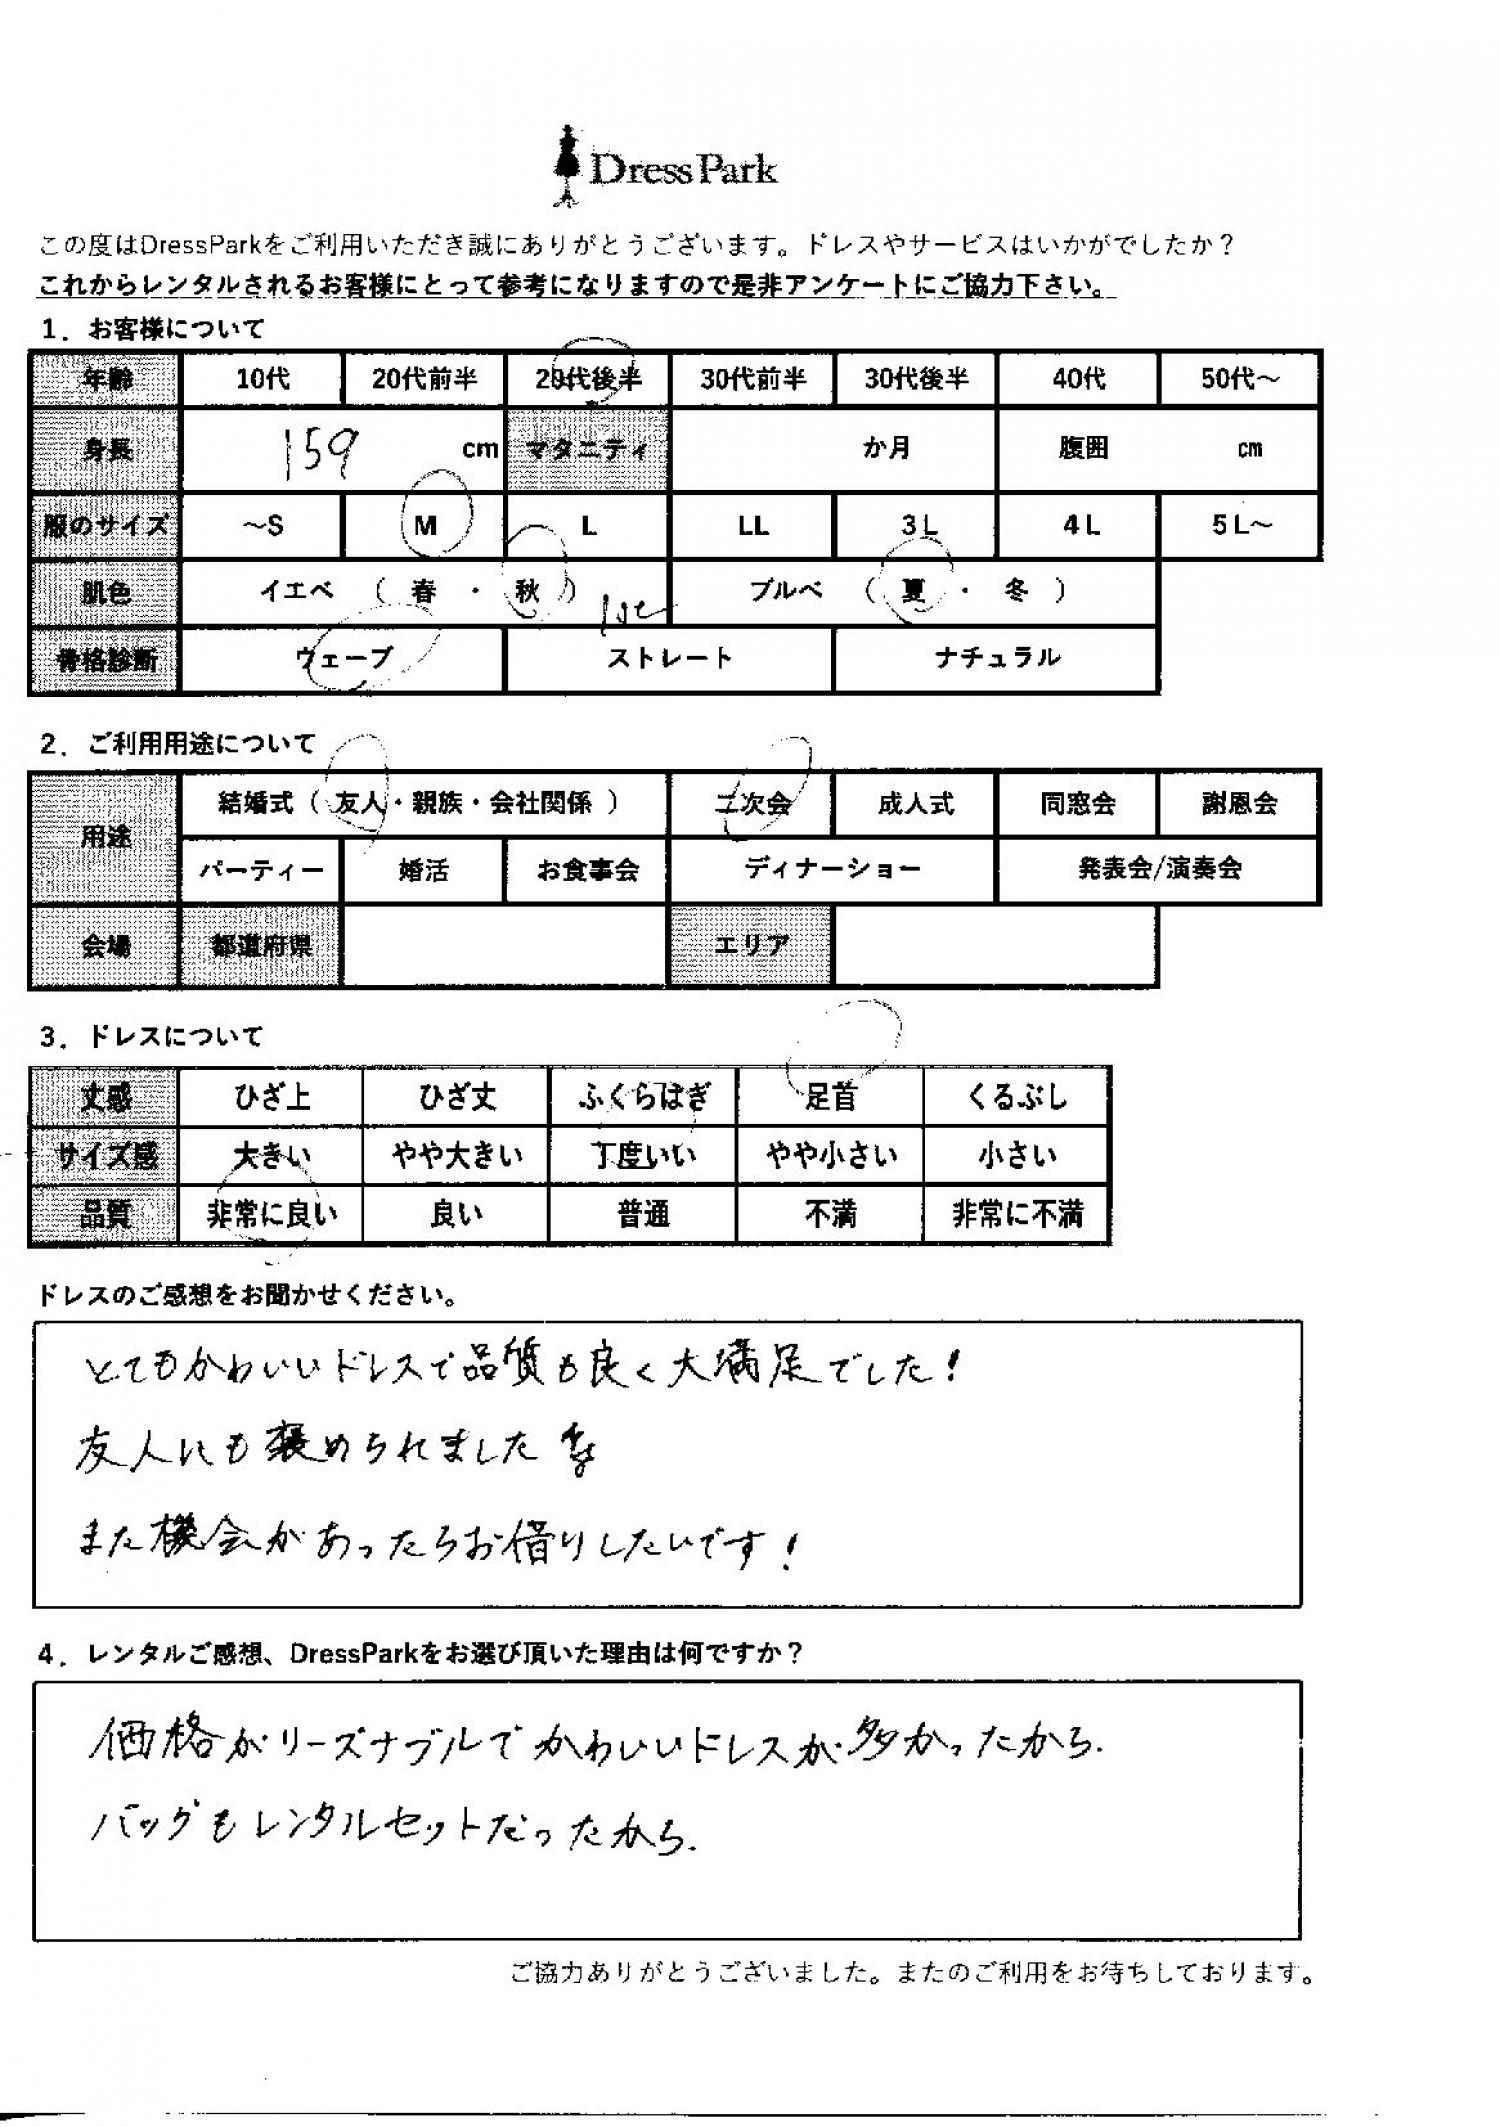 DressPark
この度はDressParkをご利用いただき誠にありがとうございます。ドレスやサービスはいかがでしたか？
これからレンタルされるお客様にとって参考になりますので是非アンケートにご協力下さい。
1．お客様について
年齢 10代 20代前半 20代後半 30代前半 30代後半 40代 50代～
身長 159 cm マタニティ か月 腹囲 cm
服のサイズ ～S M L LL 3L 4L 5L～
肌色 イエベ （ 春 ・ 秋 ） 1st ブルベ （ 夏 ・ 冬 ）
骨格診断 ウェーブ ストレート ナチュラル
2．ご利用用途について
用途 結婚式（ 友人・親族・会社関係 ） 二次会 成人式 同窓会 謝恩会
パーティー 婚活 お食事会 ディナーショー 発表会/演奏会
会場 都道府県 エリア
3．ドレスについて
丈感 ひざ上 ひざ丈 ふくらはぎ 足首 くるぶし
サイズ感 大きい やや大きい 丁度いい やや小さい 小さい
品質 非常に良い 良い 普通 不満 非常に不満
ドレスのご感想をお聞かせください。
とてもかわいいドレスで品質も良く大満足でした！
友人にも褒められました
また機会があったらお借りしたいです！
4．レンタルご感想、DressParkをお選び頂いた理由は何ですか？
価格がリーズナブルでかわいいドレスが多かったから.
バッグもレンタルセットだったから.
ご協力ありがとうございました。またのご利用をお待ちしております。